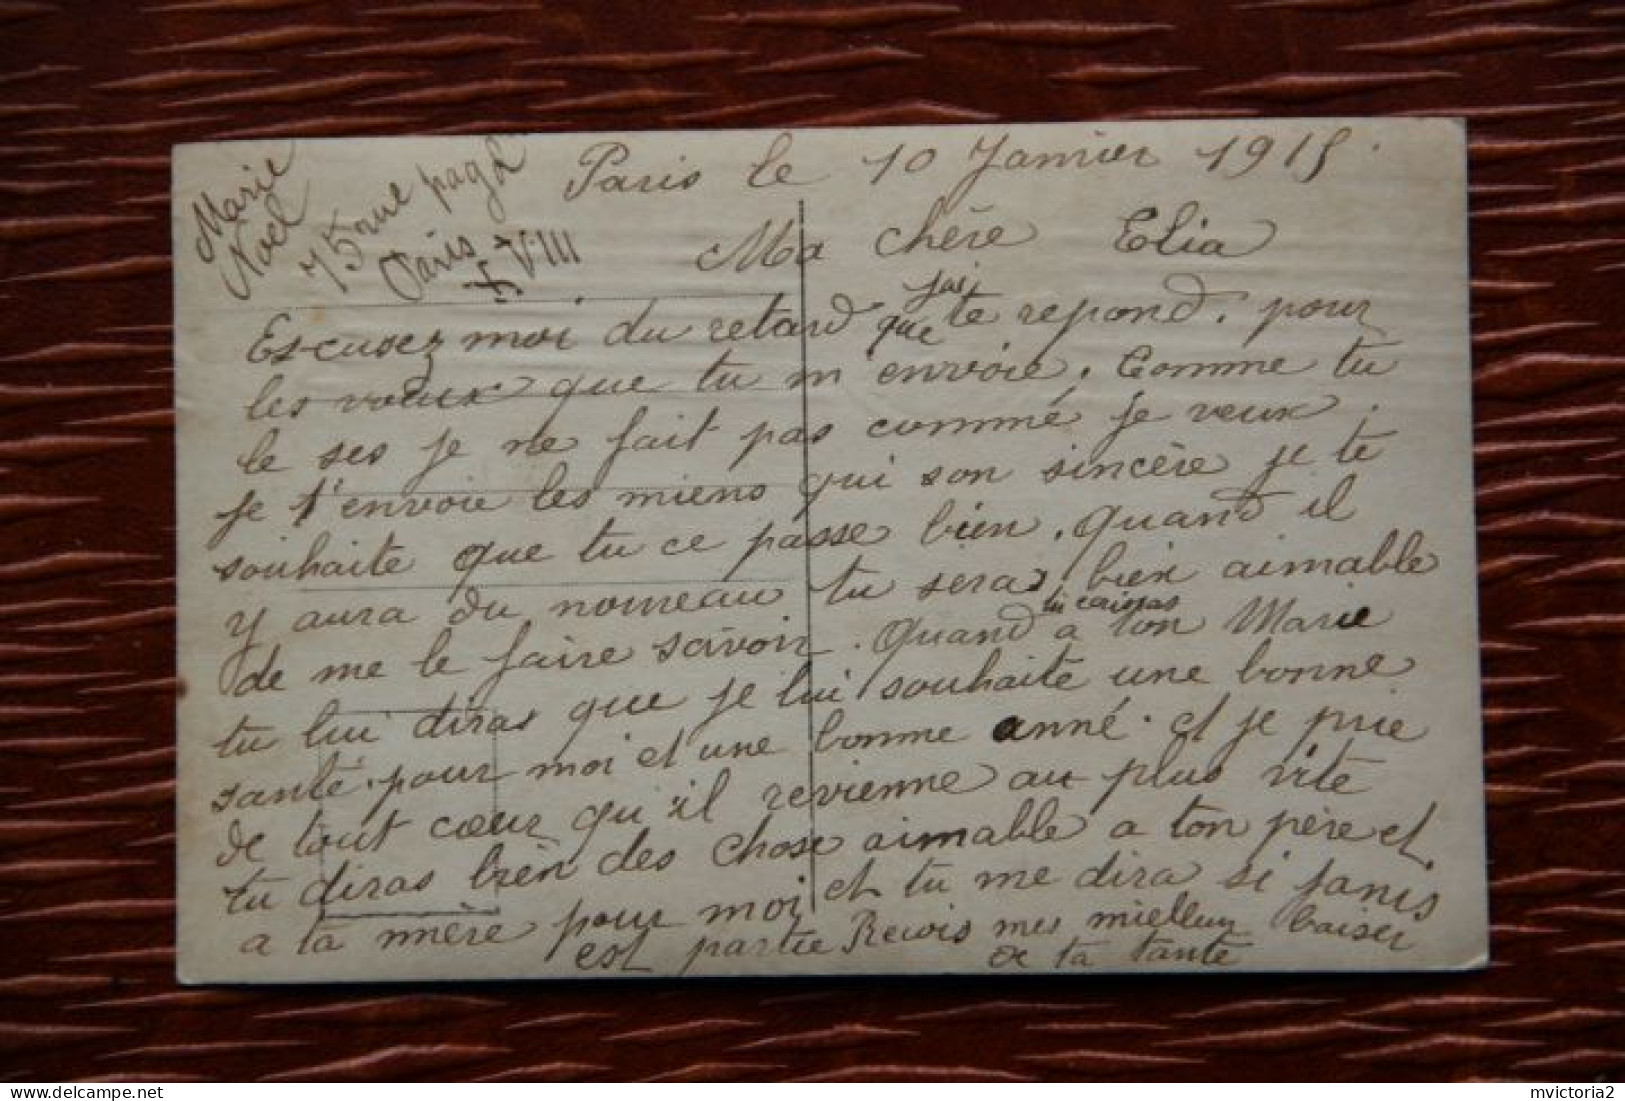 Marie
Noel
75 rue pagol
Paris
XVIII
Paris le 10 Janvier 1915.
Ma chère Elia
Escusez moi du retard que jai te repond. pour
les vœux que tu m'envoie. Comme tu
le ses je ne fait pas commé je veux.
je t'envoie les miens qui son sincère je te
souhaite que tu ce passe bien. Quand il
y aura du nouveau tu seras bien aimable
de me le faire savoir. Quand tu écriras a ton Marie
tu lui diras que je lui souhaite une bonne
santé. pour moi et une bonne anné. et je prie
de tout cœur qu'il revienne au plus vite
tu diras bien des chose aimable a ton père et
a ta mère pour moi et tu me dira si janis
est partie Recois mes mielleur baiser
de ta tante
mvictoria2